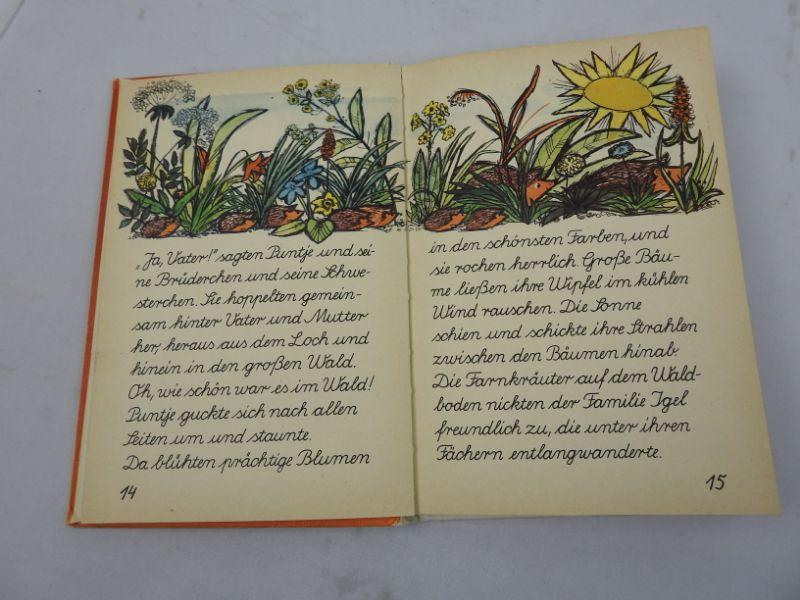 „Ja, Vater!" sagten Puntje und sei-
ne Brüderchen und seine Schwe-
sterchen. Sie hoppelten gemein-
sam hinter Vater und Mutter
her, heraus aus dem Loch und
hinein in den großen Wald.
Oh, wie schön war es im Wald!
Puntje guckte sich nach allen
Seiten um und staunte.
Da blühten prächtige Blumen
14
in den schönsten Farben, und
sie rochen herrlich. Große Bäu-
me ließen ihre Wipfel im kühlen
Wind rauschen. Die Sonne
schien und schickte ihre Strahlen
zwischen den Bäumen hinab.
Die Farnkräuter auf dem Wald-
boden nickten der Familie Igel
freundlich zu, die unter ihren
Fächern entlangwanderte.
15